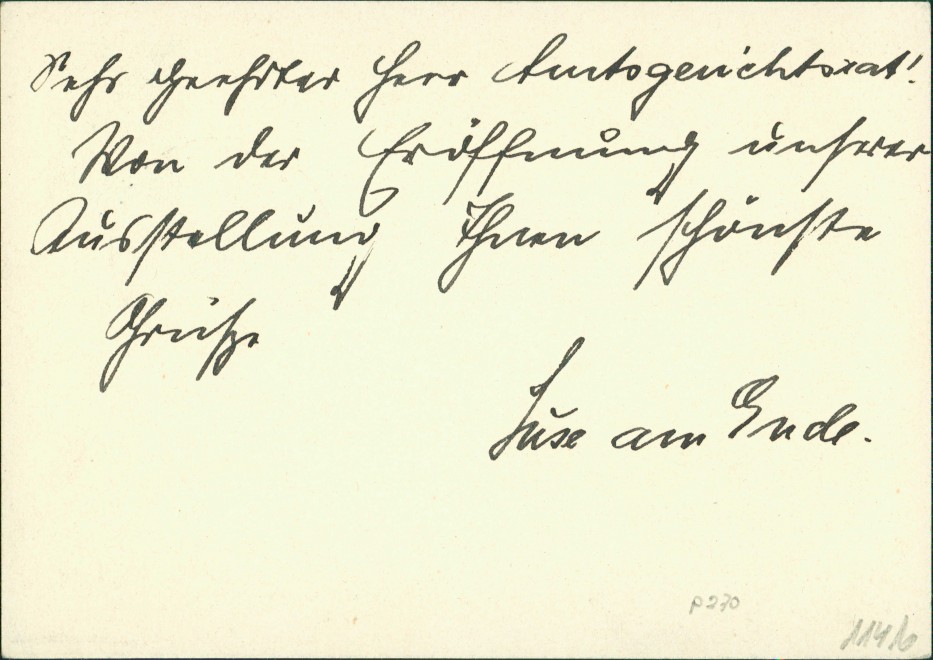 Sehr geehrter Herr Amtsgerichtsrat!
Von der Eröffnung unserer
Ausstellung Ihnen schönste
Grüße
Luse am Ende.
p 270